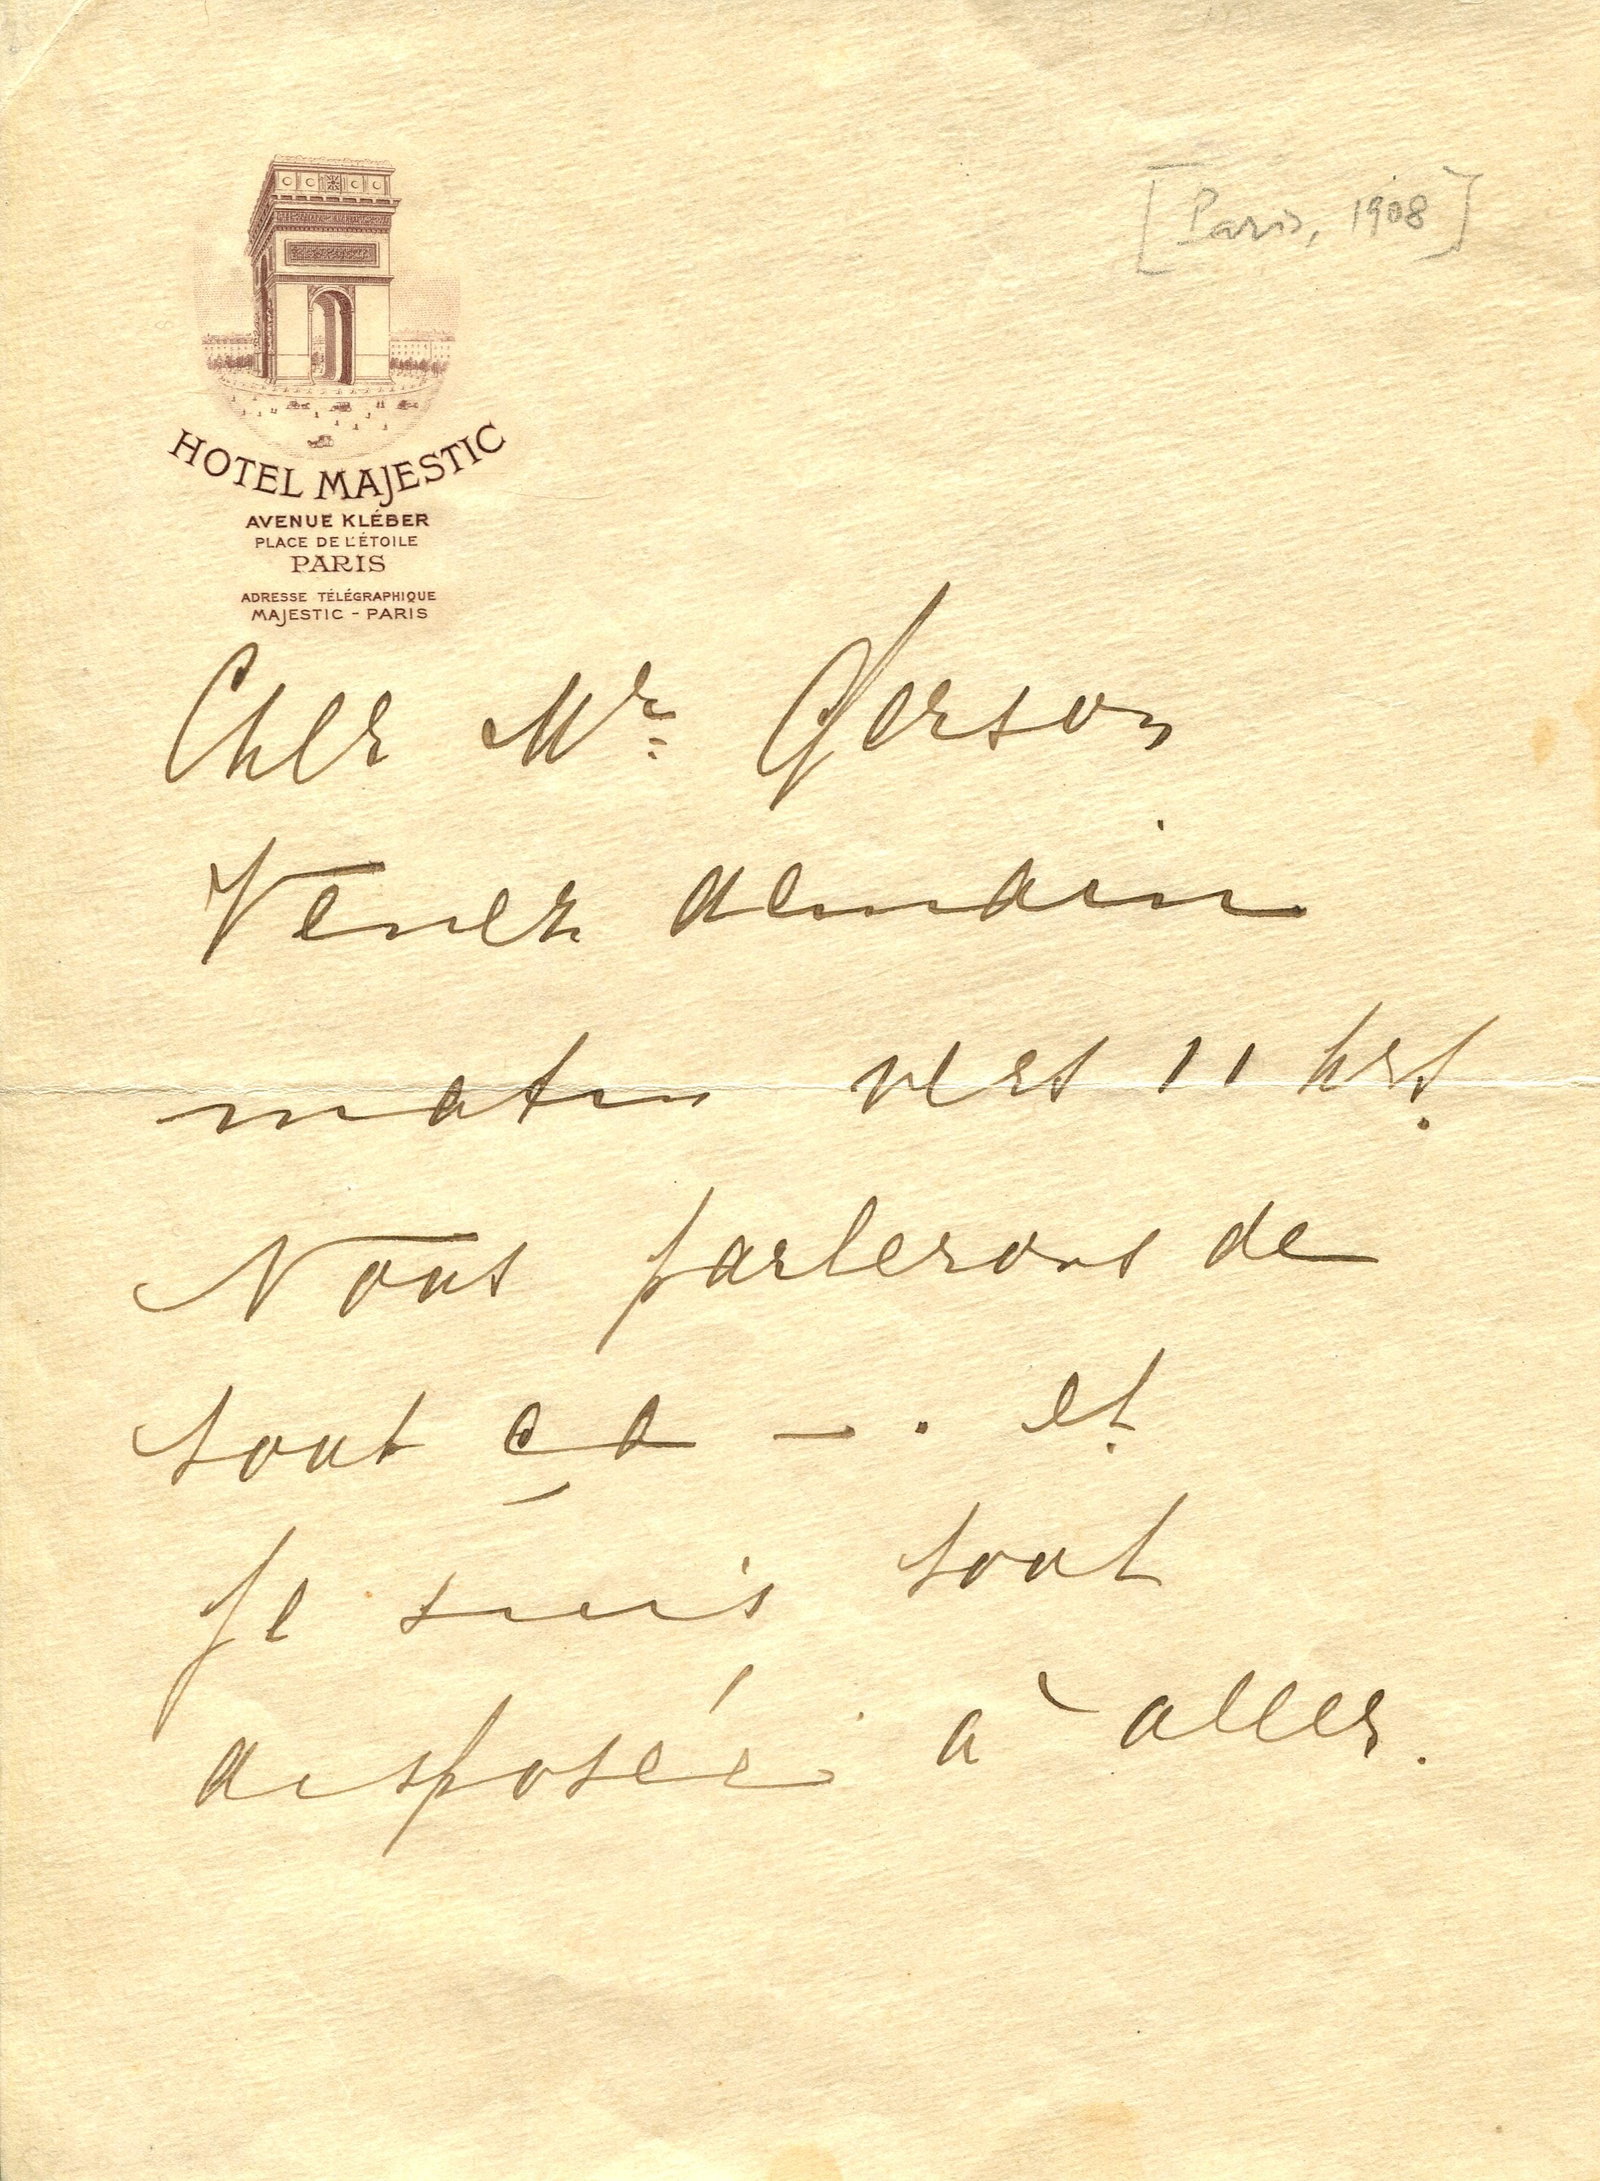 [Paris, 1908]
HOTEL MAJESTIC
AVENUE KLÉBER
PLACE DE L'ÉTOILE
PARIS
ADRESSE TÉLÉGRAPHIQUE
MAJESTIC - PARIS
Cher Mr. Gerson
Venez demain
matin vers 11 hrs.
Nous parlerons de
tout ça — . et
je suis tout
disposée à aller.